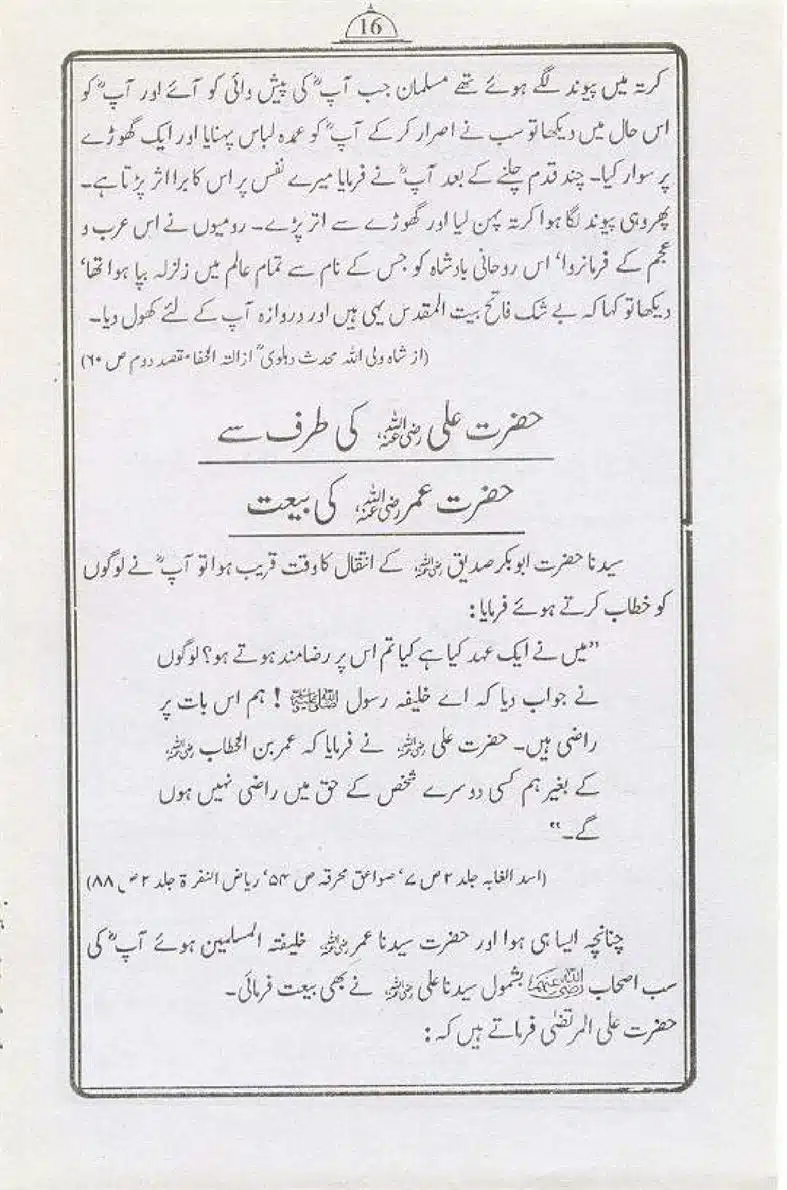 16
کرتہ میں پیوند لگے ہوئے تھے مسلمان جب آپؓ کی پیش دائی کو آئے اور آپؓ کو
اس حال میں دیکھا تو سب نے اصرار کر کے آپؓ کو عمدہ لباس پہنایا اور ایک گھوڑے
پر سوار کیا۔ چند قدم چلنے کے بعد آپؓ نے فرمایا میرے نفس پر اس کا برا اثر پڑتا ہے۔
پھر وہی پیوند لگا ہوا کرتہ پہن لیا اور گھوڑے سے اتر پڑے۔ رومیوں نے اس عرب و
عجم کے فرمانروا‘ اس روحانی بادشاہ کو جس کے نام سے تمام عالم میں زلزلہ بپا ہوا تھا‘
دیکھا تو کہا کہ بے شک فاتح بیت المقدس یہی ہیں اور دروازہ آپ کے لئے کھول دیا۔
(از شاہ ولی اللہ محدث دہلویؒ ازالتہ الخفاء مقصد دوم ص ۶۰)
حضرت علی رضی اللہ عنہ کی طرف سے
حضرت عمر رضی اللہ عنہ کی بیعت
سیدنا حضرت ابوبکر صدیق رضی اللہ عنہ کے انتقال کا وقت قریب ہوا تو آپؓ نے لوگوں
کو خطاب کرتے ہوئے فرمایا:
”میں نے ایک عہد کیا ہے کیا تم اس پر رضامند ہوتے ہو؟ لوگوں
نے جواب دیا کہ اے خلیفہ رسول ﷺ! ہم اس بات پر
راضی ہیں۔ حضرت علی رضی اللہ عنہ نے فرمایا کہ عمر بن الخطاب رضی اللہ عنہ
کے بغیر ہم کسی دوسرے شخص کے حق میں راضی نہیں ہوں
گے۔“
(اسد الغابہ جلد ۲ ص ۷‘ صواعق محرقہ ص ۵۴‘ ریاض النفرۃ جلد ۲ ص ۸۸)
چنانچہ ایسا ہی ہوا اور حضرت سیدنا عمر رضی اللہ عنہ خلیفتہ المسلمین ہوئے آپؓ کی
سب اصحاب رضی اللہ عنہم بشمول سیدنا علی رضی اللہ عنہ نے بھی بیعت فرمائی۔
حضرت علی المرتضیٰ فرماتے ہیں کہ: